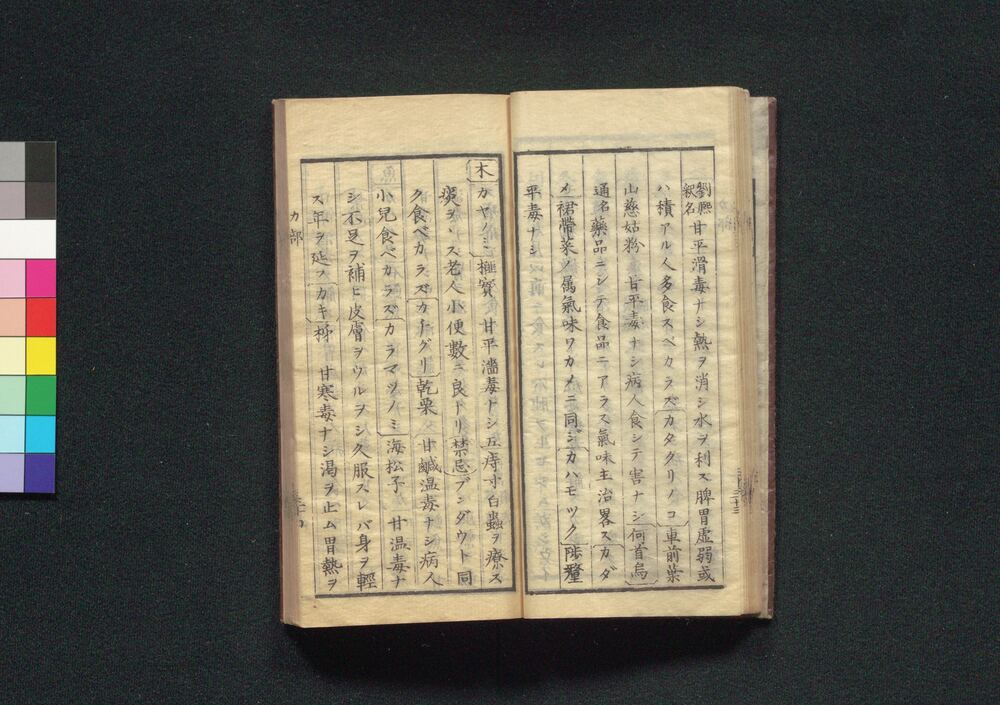 劉熙
釈名
甘平滑毒ナシ熱ヲ消シ水ヲ利ス脾胃虚弱或
ハ積アル人多食スベカラズカタクリノコ車前葉
山慈姑粉 甘平毒ナシ病人食シテ害ナシ何首烏
通名藥品ニシテ食品ニアラス氣味主治畧スカダ
メ裙帶菜ノ属氣味ワカメニ同ジカハモヅク陟釐
平毒ナシ
木カヤノミ榧實 甘平濇毒ナシ五痔寸白蟲ヲ療ス
老人小便數ニ良ナリ禁忌ブンダウト同
ク食ベカラズカチグリ乾栗 甘鹹温毒ナシ病人
小兒食ベカラズカラマツノミ海松子 甘温毒ナ
シ不足ヲ補ヒ皮膚ヲウルヲシ久服スレバ身ヲ輕
ス年ヲ延スカキ柹 甘寒毒ナシ渇ヲ止ム胃熱ヲ
カ部